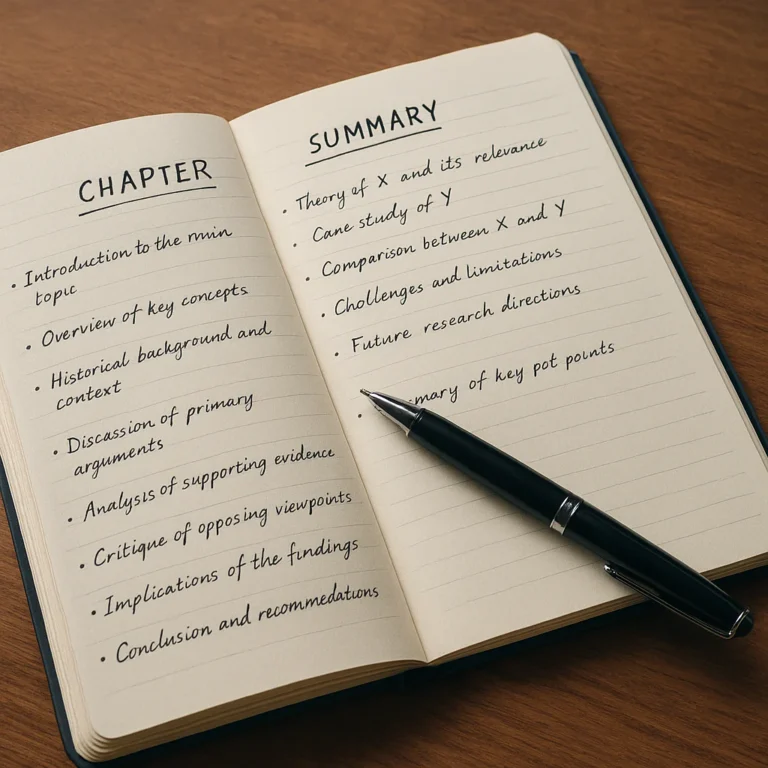 CHAPTER
• Introduction to the main
topic
• Overview of key concepts
• Historical background and
context
• Discassion of primary
arguments
• Analysis of supporting evidence
• Critique of opposing viewpoints
• Implications of the findings
• Conclusion and recommedations
SUMMARY
• Theory of X and its relevance
• Cane study of Y
• Comparison between X and Y
• Chollenges and limitations
• Future research directions
• mary of key pot points